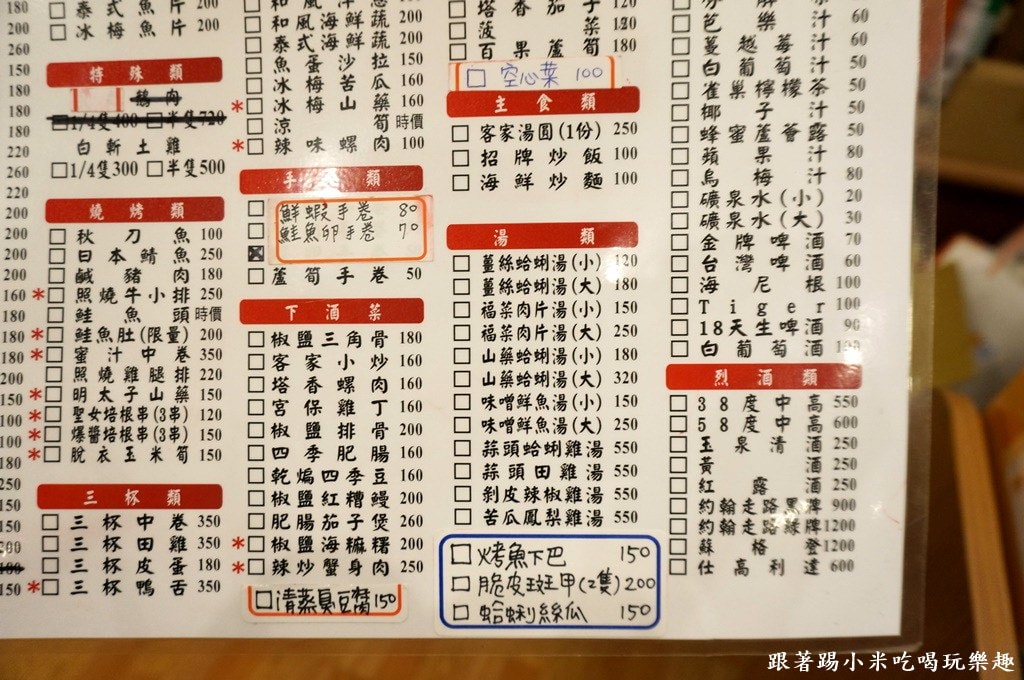 180
200
200
150
180
180
180
220
260
200
200
200
200
160
180
180
200
150
100
100
180
250
150
200
150
泰式魚片 200
冰梅魚片 200
特殊類
鵝肉
1/4隻400 半隻720
白斬土雞
□1/4隻300 □半隻500
燒烤類
□秋刀魚 100
□日本鯖魚 250
□鹹豬肉 180
*□照燒牛小排 250
□鮭魚頭 時價
*□鮭魚肚(限量) 200
*□蜜汁中卷 350
□照燒雞腿排 220
*□明太子山藥 150
*□聖女培根串(3串) 120
*□爆醬培根串(3串) 150
*□脫衣玉米筍 150
三杯類
□三杯中卷 350
□三杯田雞 350
□三杯皮蛋 180
*□三杯鴨舌 350
□和風海鮮蔬 200
□泰式海鮮蔬 200
□魚蛋沙拉 150
□冰梅苦瓜 160
*□冰梅山藥 160
□涼筍 時價
*□辣味螺肉 100
手卷類
□鮮蝦手卷 80
□鮭魚卵手卷 70
□蘆筍手卷 50
下酒菜
□椒鹽三角骨 180
□客家小炒 160
□塔香螺肉 160
□宮保雞丁 160
□椒鹽排骨 200
□四季肥腸 160
□乾煸四季豆 160
□椒鹽紅糟鰻 200
□肥腸茄子煲 260
*□椒鹽海蔴糬 200
*□辣炒蟹身肉 250
□清蒸臭豆腐 150
□塔香茄子 120
□菠菜 120
□百果蘆筍 180
□空心菜 100
主食類
□客家湯圓(1份) 250
□招牌炒飯 100
□海鮮炒麵 100
湯類
□薑絲蛤蜊湯(小) 120
□薑絲蛤蜊湯(大) 180
□福菜肉片湯(小) 150
□福菜肉片湯(大) 250
□山藥蛤蜊湯(小) 180
□山藥蛤蜊湯(大) 320
□味噌鮮魚湯(小) 150
□味噌鮮魚湯(大) 250
□蒜頭蛤蜊雞湯 550
□蒜頭田雞湯 550
□剝皮辣椒雞湯 550
□苦瓜鳳梨雞湯 550
□烤魚下巴 150
□脆皮斑甲(2隻) 200
□蛤蜊絲瓜 150
□芭樂汁 60
□蔓越莓汁 60
□白葡萄汁 50
□雀巢檸檬茶 50
□椰子汁 50
□蜂蜜蘆薈露 50
□蘋果汁 80
□烏梅汁 80
□礦泉水(小) 20
□礦泉水(大) 30
□金牌啤酒 70
□台灣啤酒 60
□海尼根 100
□Tiger 100
□18天生啤酒 90
□白葡萄酒
烈酒類
□38度中高 550
□58度中高 600
□玉泉清酒 250
□黃酒 250
□紅露酒 250
□約翰走路黑牌 900
□約翰走路綠牌 1200
□蘇格登 1200
□仕高利達 600
跟著踢小米吃喝玩樂趣